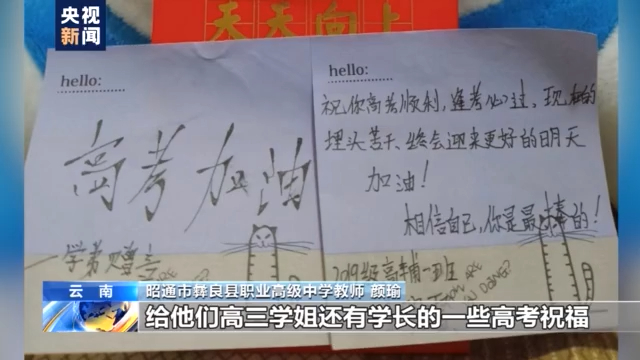 央视
新闻
天天向上
hello:
高考加油
—学弟赠言
hello:
祝你高考顺利,逢考必过、现在的
埋头苦干、终会迎来更好的明天
加油!
相信自己,你是最棒的!
2019级高辅一班
ARE
DOING?
云南
昭通市彝良县职业高级中学教师 颜瑜
给他们高三学姐还有学长的一些高考祝福